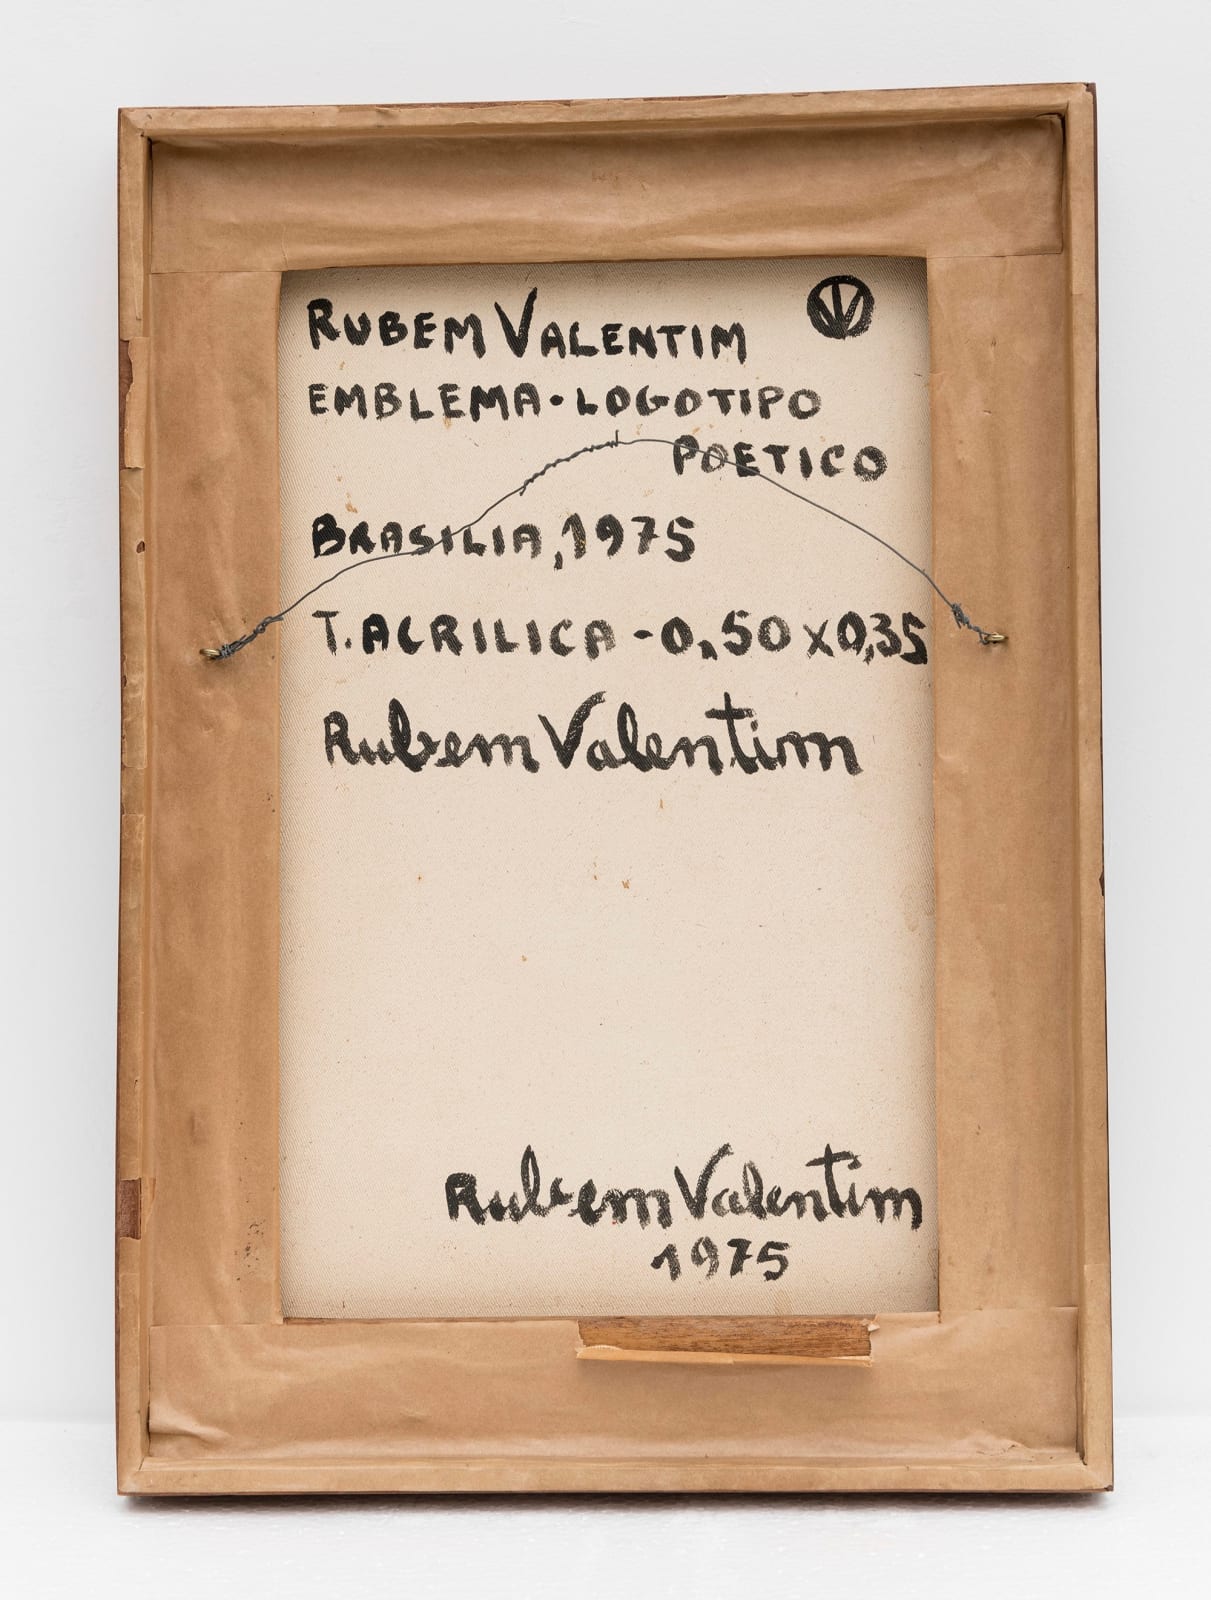 RUBEM VALENTIM
EMBLEMA·LOGOTIPO
POETICO
BRASILIA, 1975
T. ACRILICA - 0,50 X 0,35
Rubem Valentim
Rubem Valentim
1975